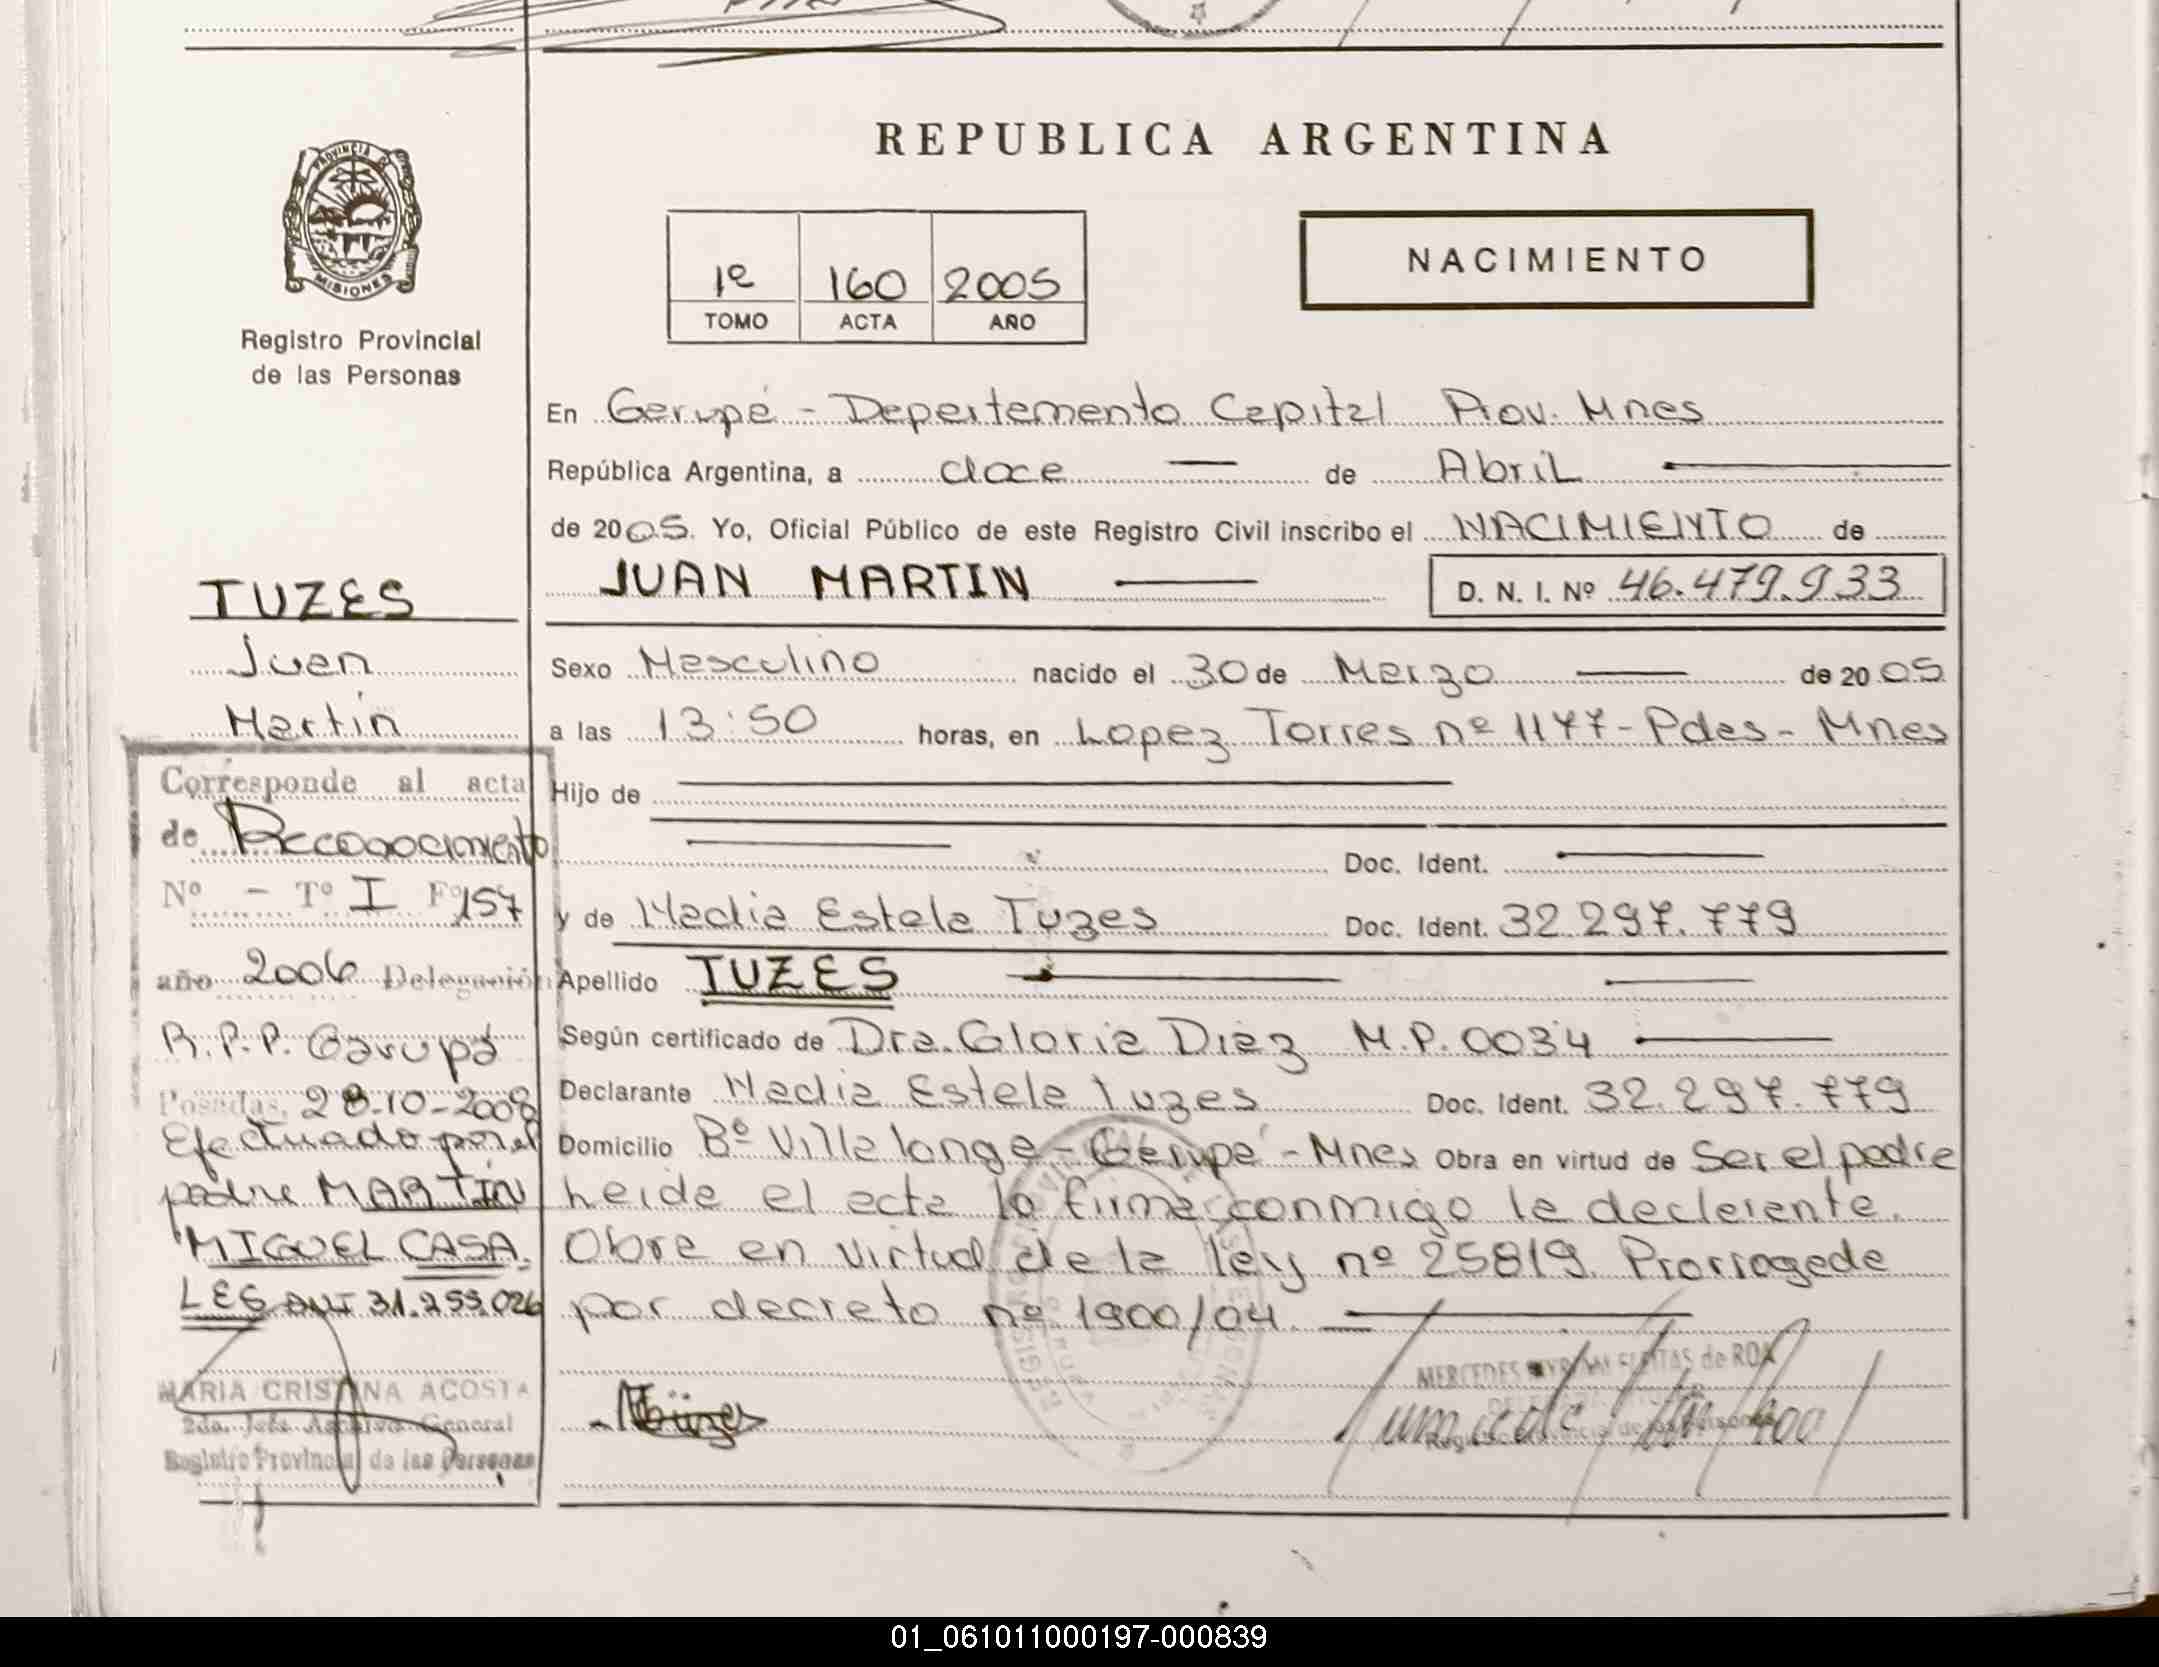 REPUBLICA ARGENTINA
PROVINCIA D
MISIONES
Registro Provincial
de las Personas
1º 160 2005
TOMO ACTA AÑO
NACIMIENTO
En Garupá - Departamento Capital Prov. Mnes
República Argentina, a doce de Abril
de 2005. Yo, Oficial Público de este Registro Civil inscribo el NACIMIENTO de
JUAN MARTIN D. N. I. Nº 46.479.933
Sexo Masculino nacido el 30 de Marzo de 2005
a las 13:50 horas, en Lopez Torres nº 1177 - Pdas - Mnes
Hijo de
Doc. Ident.
y de Nadia Estela Tuzes Doc. Ident. 32.297.779
Apellido TUZES
Según certificado de Dra. Gloria Diaz M.P. 0034
Declarante Nadia Estela Tuzes Doc. Ident. 32.297.779
Domicilio Bº Villa longa - Garupá - Mnes Obra en virtud de Ser el padre
leida el acta la firma conmigo la declarante.
Obra en virtud de la ley nº 25819. Prorrogada
por decreto nº 1900/04.
TUZES
Juan
Martín
Corresponde al acta
de Reconocimiento
Nº - Tº I Fº 157
año 2006 Delegación
R.P.P. Garupá
Posadas, 28-10-2008
Efectuado por el
padre MARTIN
MIGUEL CASA-
LES DNI 31.255.026
MARIA CRISTINA ACOSTA
2da. Jefa Archivo General
Registro Provincial de las Personas
MERCEDES MYRIAM FLEITAS de ROA
Registro Provincial de las Personas
01_061011000197-000839